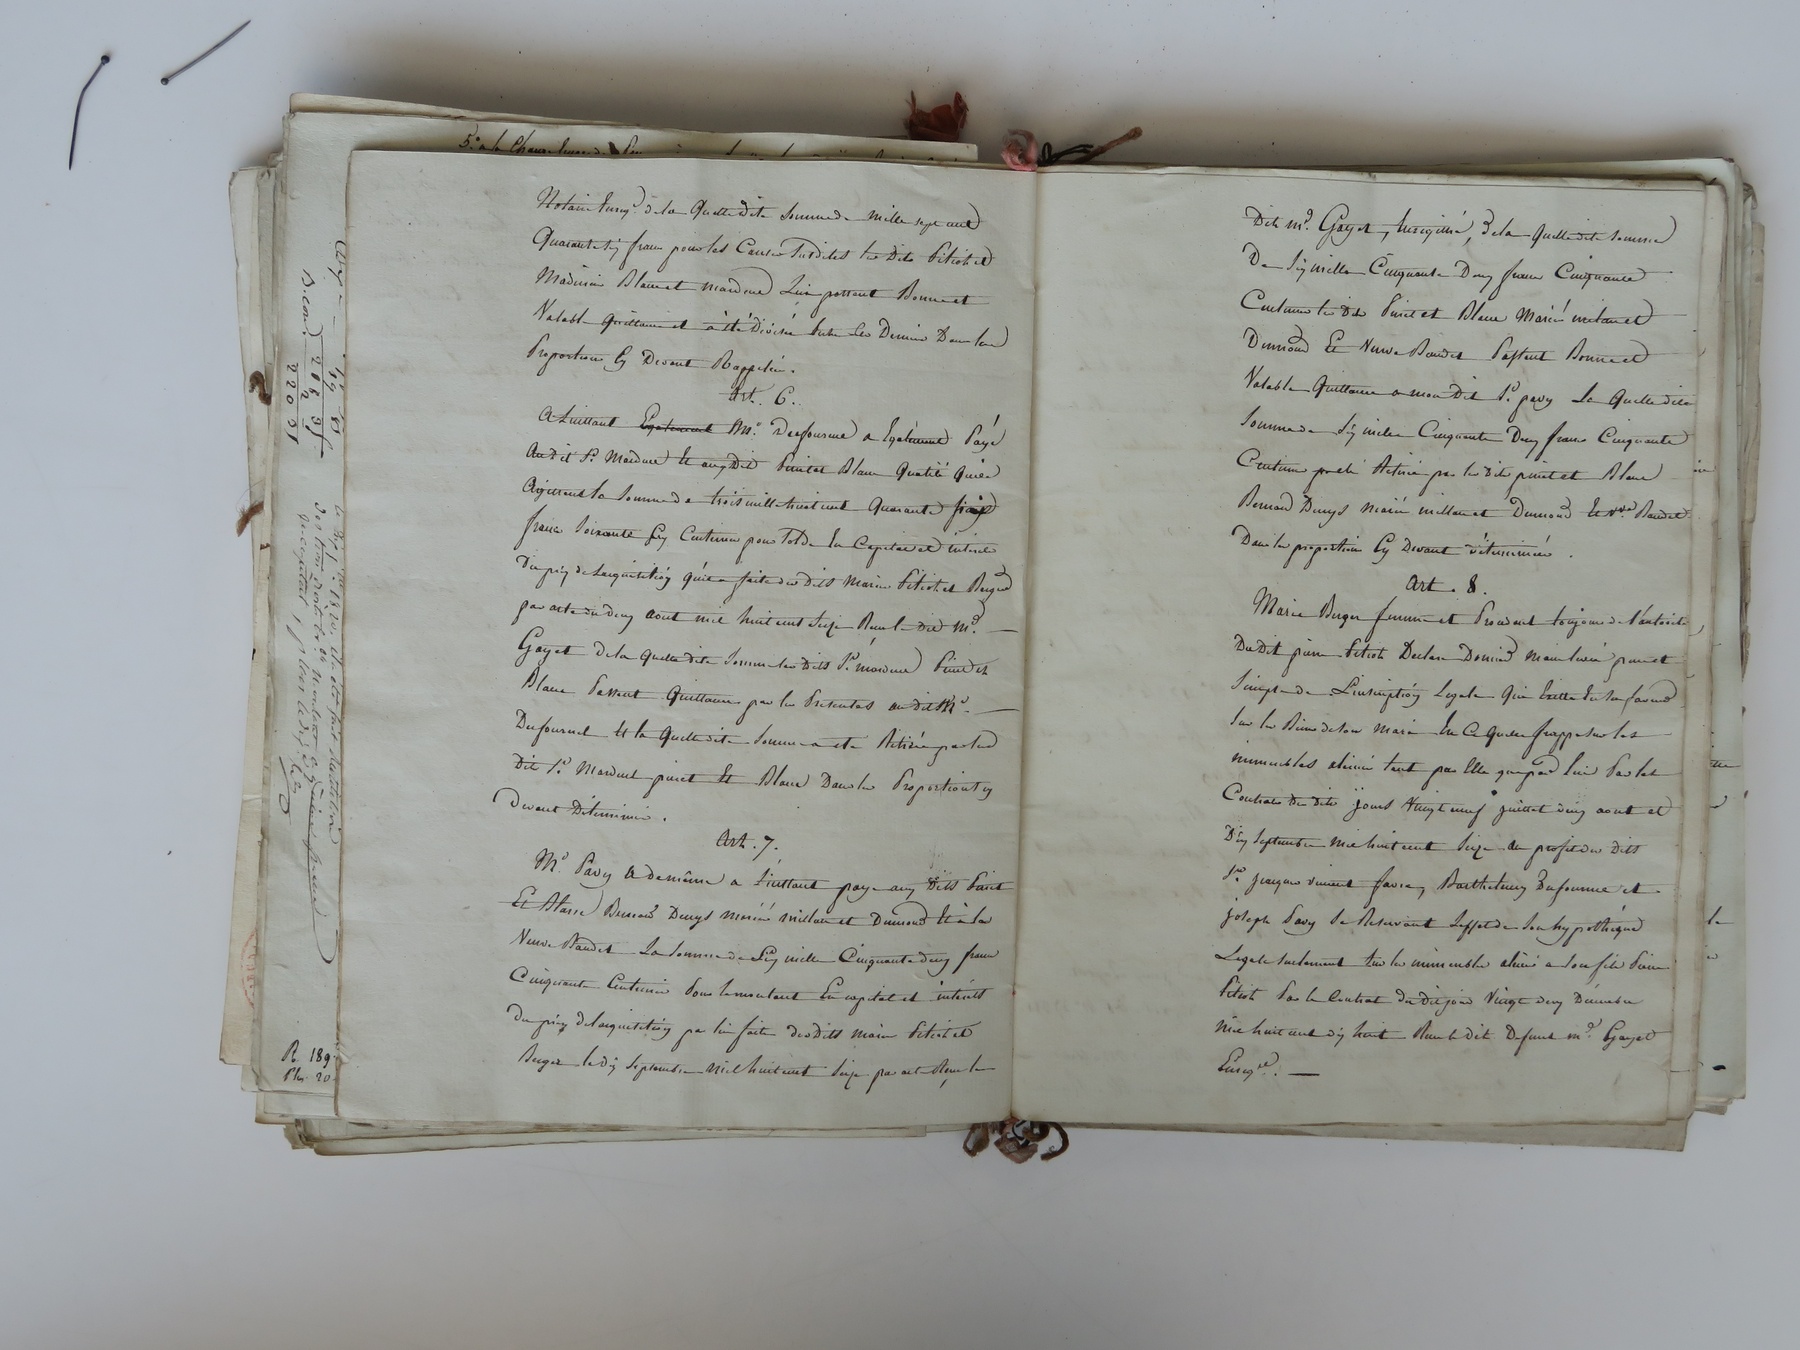 Notaire Enreg.é de la quelle dite Somme de mille sept cent
Quarante six francs pour les Causes Susdites les Dits Pitiot et
Mariés Blanc et marduel Lui passent Bonne et
Valable Quittance et a été divisée Entre Les Derniers Dans la
Proportion Cy Devant Rappelée.
Art. 6.
A Linstant Également Mr. Dufournel a Également Payé
Audit Sr. Marduel Et aux Dits Pinet et Blanc Qualité qu'ils
Agissent la Somme de trois mille huit cent Quarante
francs Soixante Six Centimes pour Solde En Capital et intérêts
Du prix de Lacquisition qu'il a faite des dits Mariés Pitiot et Berger
par acte du deux aout mil huit cent Seize Reçu le dit Me.
Gayet de la quelle dite Somme les dits Sr. marduel Pinet et
Blanc Passent Quittance par les Présentes au dit Mr.
Dufournel Et la Quelle dite Somme a été Retirée par les
Dit Sr. Marduel pinet Et Blanc Dans les Proportions cy
Devant Déterminées.
Art. 7.
Mr. Pavy a de même a L'instant payé aux dits Pinet
Et Blanc Bernard Denys mariés millan et Dumond Et à la
Veuve Baudet La Somme de Six mille Cinquante deux francs
Cinquante Centimes Pour le montant En capital et intérêts
du prix de Lacquisition par lui faite des dits mariés Pitiot et
Berger le dix Septembre mil huit cent Seize par acte Reçu le
Dit me. Gayet, Enregistré, de la quelle dite Somme
De Six mille Cinquante Deux francs Cinquante
Centimes les dits Pinet et Blanc Mariés millan et
Dumond Et Veuve Baudet Passent Bonne et
Valable Quittance a mon Dit Sr. pavy La Quelle dite
Somme de Six mille Cinquante Deux francs Cinquante
Centimes par été Retirée par les dits pinet et Blanc
Bernard Denys mariés millan et Dumond Et vve Baudet
Dans la proportion Cy Devant déterminée.
Art. 8.
Marie Berger femme et Procédant toujours de L'autorité
Du Dit pierre Pitiot Déclare Donner Main levée pure et
Simple de L'inscription Légale Qui Existe En Sa faveur
Sur les Biens de Son Mari En Ce Quelle frappe Sur les
immeubles aliénés tant par Elle que par Lui Par les
Contrats des dits jours Vingt neuf juillet deux aout et
Dix Septembre mil huit cent Seize au profit des dits
Srs. jacques vincent favre, Barthelemy Dufournel et
joseph Pavy Se Réservant Leffet de Son hypothèque
Légale Seulement Sur les immeubles aliénés a Son fils Pierre
Pitiot Par le Contrat du dit jour Vingt deux Décembre
Mil huit cent dix huit Reçu le dit Defunt me. Gayet
Enregré.
R. 189